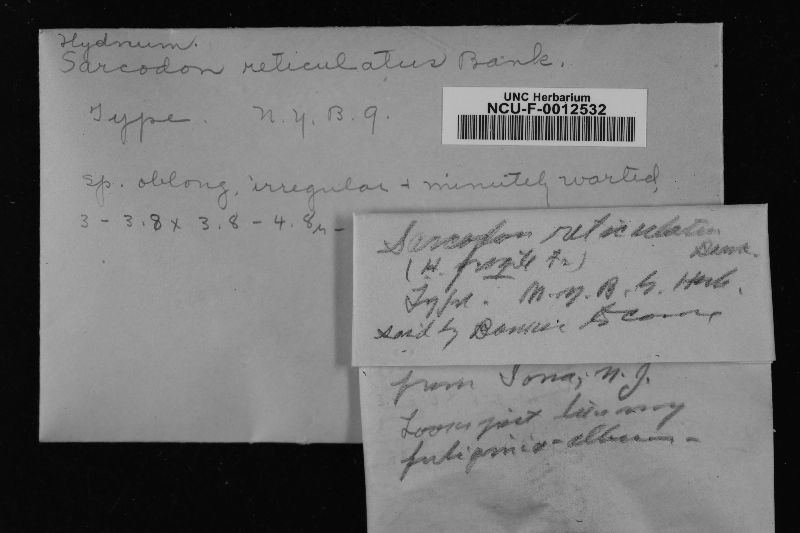 Hydnum.
Sarcodon reticulatus Bank.
UNC Herbarium
NCU-F-0012532
Type. N.Y.B.G.
sp. oblong, irregular + minutely warted,
3 - 3.8 x 3.8 - 4.8µ -
Sarcodon reticulatus
Bank.
(H. fragile Fr.)
Type. N.Y.B.G. Herb.
said by Banker to come
from Iona, N.J.
Looks just like my
fuligineo-album -